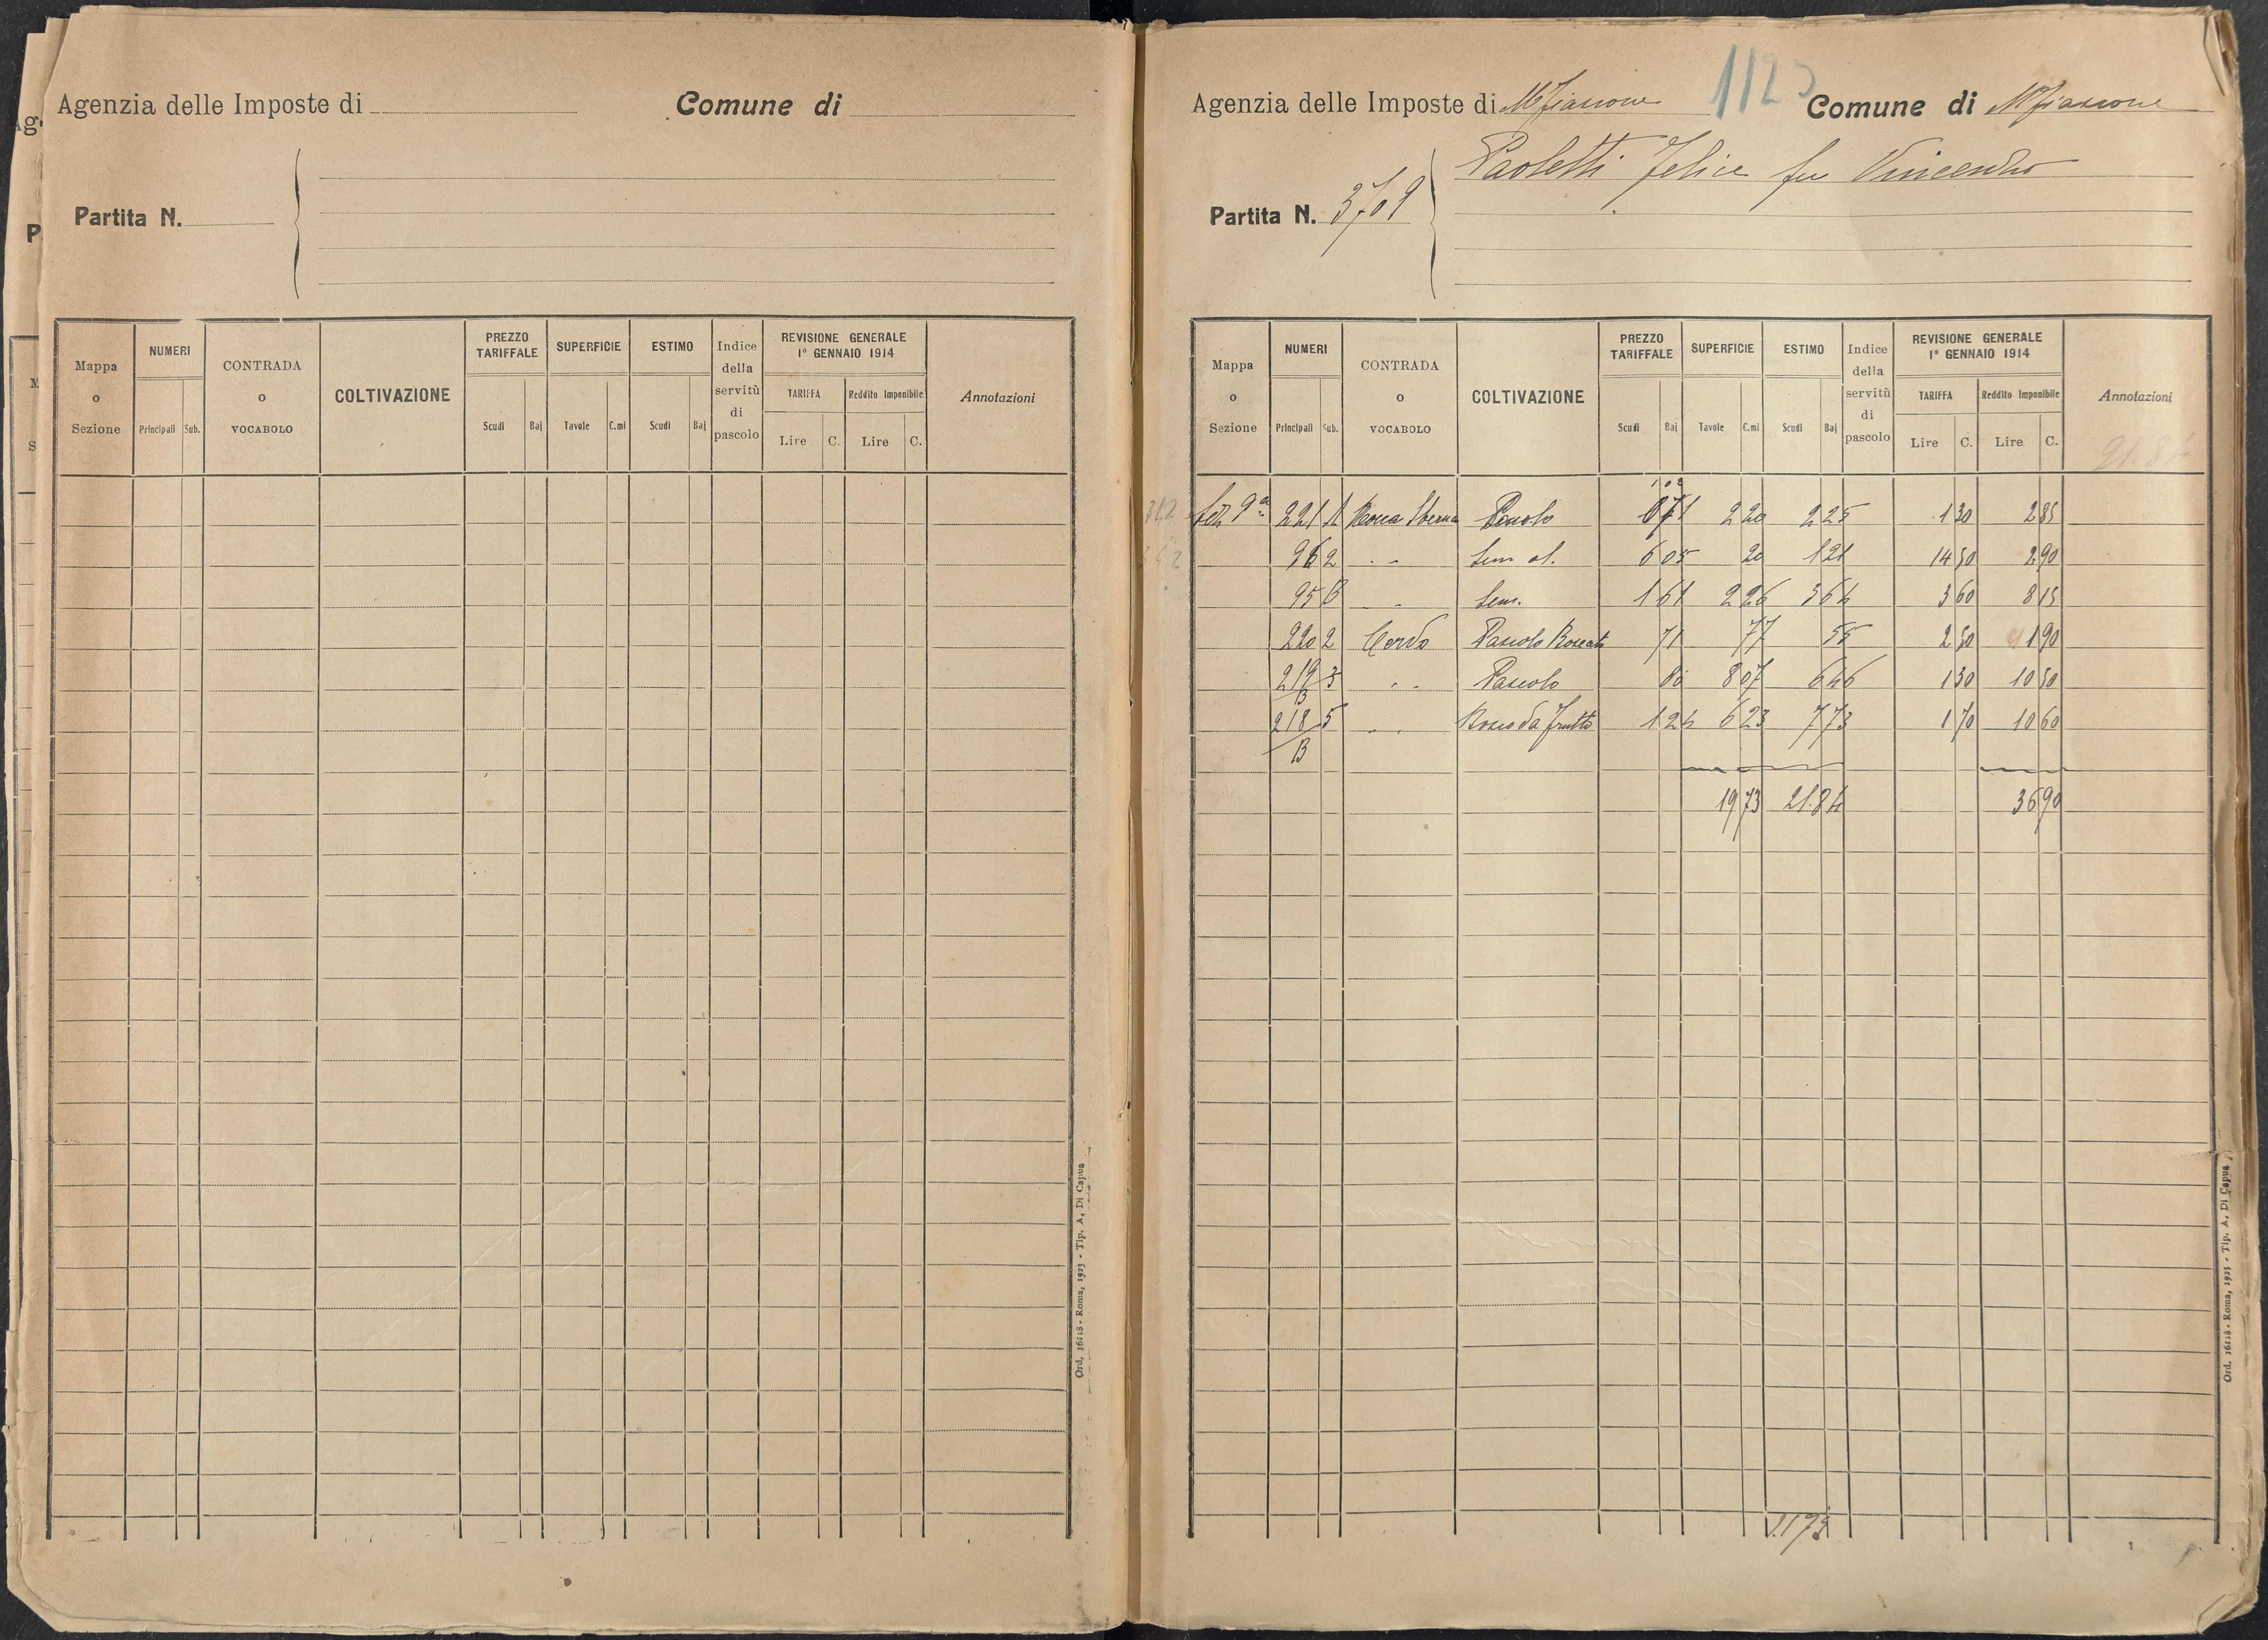 Agenzia delle Imposte di
Comune di
Partita N.
Mappa o Sezione
NUMERI
Principali
Sub.
CONTRADA o VOCABOLO
COLTIVAZIONE
PREZZO TARIFFALE
Scudi
Baj
SUPERFICIE
Tavole
C.mi
ESTIMO
Scudi
Baj
Indice della servitù di pascolo
REVISIONE GENERALE
1° GENNAIO 1914
TARIFFA
Lire
C.
Reddito Imponibile
Lire
C.
Annotazioni
Ord. 16118 - Roma, 1923 - Tip. A. Di Capua
Agenzia delle Imposte di Mfiascone
112
Comune di Mfiascone
Paoletti Felice fu Vincenzo
Partita N. 3709
Mappa o Sezione
NUMERI
Principali
Sub.
CONTRADA o VOCABOLO
COLTIVAZIONE
PREZZO TARIFFALE
Scudi
Baj
SUPERFICIE
Tavole
C.mi
ESTIMO
Scudi
Baj
Indice della servitù di pascolo
REVISIONE GENERALE
1° GENNAIO 1914
TARIFFA
Lire
C.
Reddito Imponibile
Lire
C.
Annotazioni
21.84
312 Sez 9a 221 1 Pascolo 220 225 1 30 2 85
96 2 " " Sem ol. 6 05 20 1 21 14 50 2 90
95 B " Sem. 1 61 2 26 3 64 3 60 8 15
220 2 Pascolo Boscato 71 77 55 2 50 1 90
219/B 3 " " Pascolo 80 8 07 6 46 1 30 10 50
218/B 5 " " Bosco da frutto 1 24 6 23 7 73 1 70 10 60
19 73 21.84 36 90
Ord. 16118 - Roma, 1923 - Tip. A. Di Capua